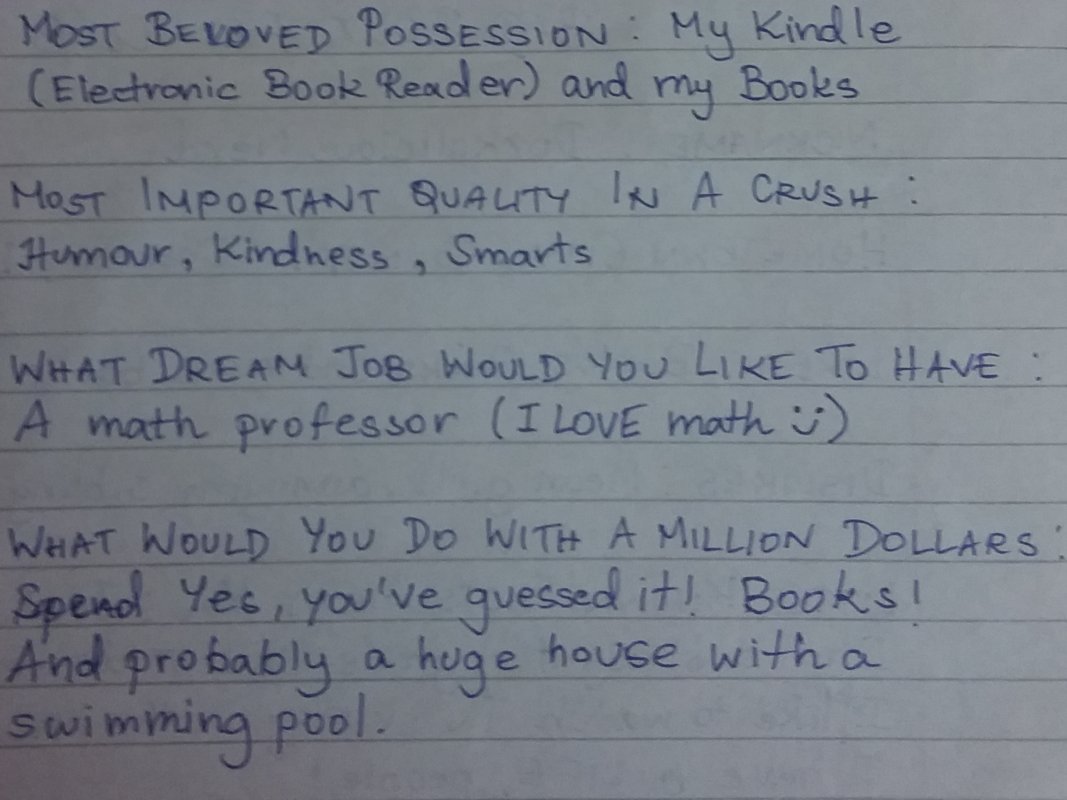 MOST BELOVED POSSESSION : My Kindle
(Electronic Book Reader) and my Books
MOST IMPORTANT QUALITY IN A CRUSH :
Humour, Kindness, Smarts
WHAT DREAM JOB WOULD YOU LIKE TO HAVE :
A math professor (I LOVE math :))
WHAT WOULD YOU DO WITH A MILLION DOLLARS :
Spend Yes, you've guessed it! Books!
And probably a huge house with a
swimming pool.